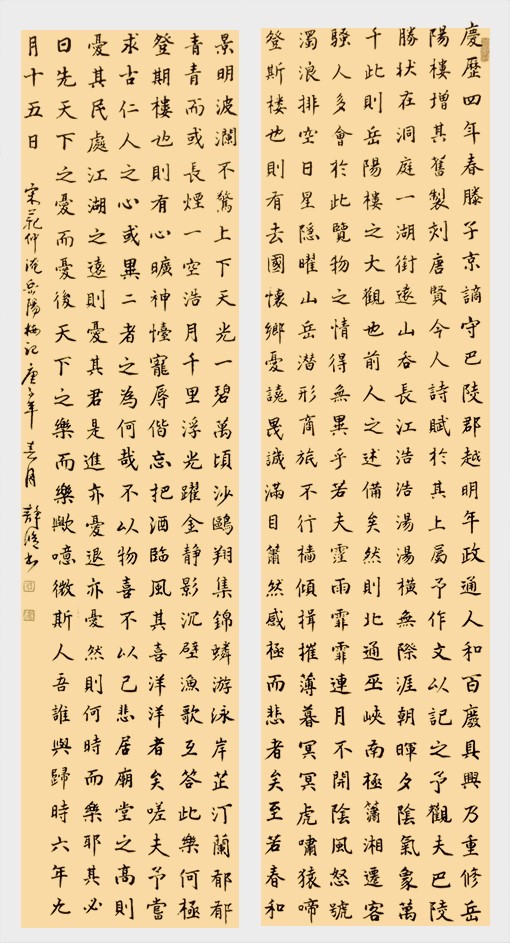 慶歷四年春滕子京謫守巴陵郡越明年政通人和百廢具興乃重修岳
陽樓增其舊製刻唐賢今人詩賦於其上屬予作文以記之予觀夫巴陵
勝狀在洞庭一湖銜遠山吞長江浩浩湯湯橫無際涯朝暉夕陰氣象萬
千此則岳陽樓之大觀也前人之述備矣然則北通巫峽南極瀟湘遷客
騷人多會於此覽物之情得無異乎若夫霪雨霏霏連月不開陰風怒號
濁浪排空日星隱曜山岳潛形商旅不行檣傾楫摧薄暮冥冥虎嘯猿啼
登斯楼也則有去國懷鄉憂讒畏譏滿目蕭然感極而悲者矣至若春和
景明波瀾不驚上下天光一碧萬頃沙鷗翔集錦鱗游泳岸芷汀蘭郁郁
青青而或長煙一空浩月千里浮光躍金靜影沉璧漁歌互答此樂何極
登期樓也則有心曠神怡寵辱偕忘把酒臨風其喜洋洋者矣嗟夫予嘗
求古仁人之心或異二者之為何哉不以物喜不以己悲居廟堂之高則
憂其民處江湖之遠則憂其君是進亦憂退亦憂然則何時而樂耶其必
曰先天下之憂而憂後天下之樂而樂歟噫微斯人吾誰與歸時六年九
月十五日 宋范仲淹岳陽樓記庚子年春月靜書